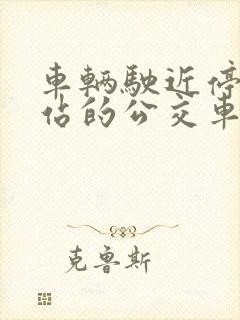 車輛駛近停
佔的公交車
克魯斯